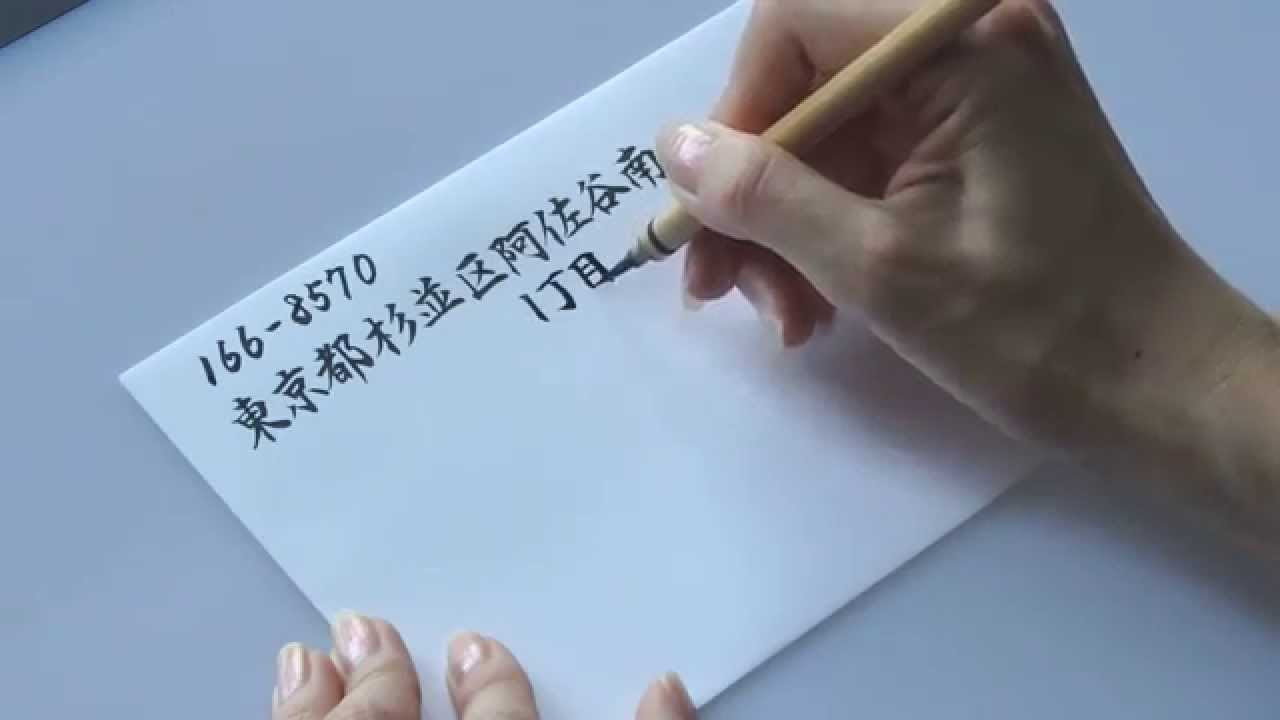 166-8570
東京都杉並区阿佐谷南
1丁目